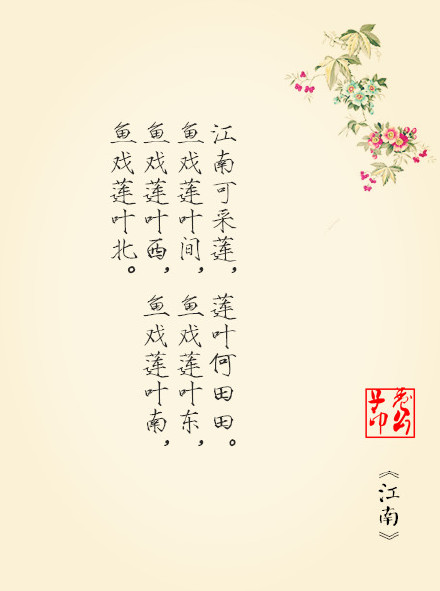 江南可采莲，莲叶何田田。
鱼戏莲叶间，鱼戏莲叶东，
鱼戏莲叶西，鱼戏莲叶南，
鱼戏莲叶北。
《江南》